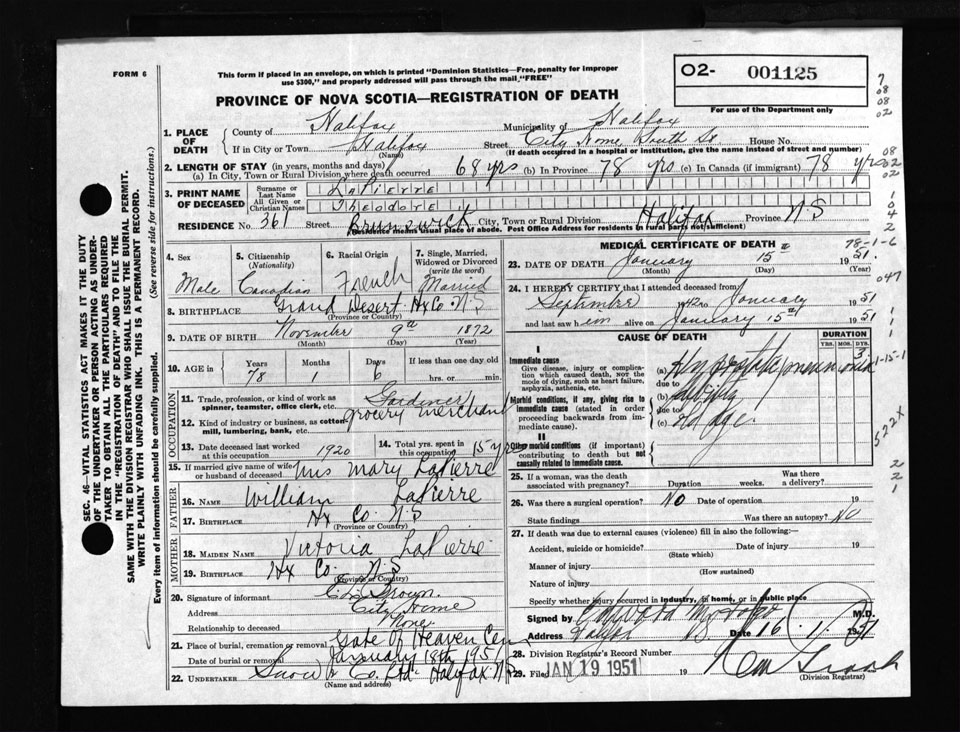 FORM 6
This form if placed in an envelope, on which is printed "Dominion Statistics—Free, penalty for improper
use $300," and properly addressed will pass through the mail "FREE"
O2- 001125
For use of the Department only
PROVINCE OF NOVA SCOTIA—REGISTRATION OF DEATH
1. PLACE OF DEATH
County of Halifax Municipality of Halifax
If in City or Town Halifax Street City Home South St House No.
(Name) (If death occurred in a hospital or institution, give the name instead of street and number)
2. LENGTH OF STAY (in years, months and days)
(a) In City, Town or Rural Division where death occurred 68 yrs (b) In Province 78 yrs (c) In Canada (if immigrant) 78 yrs
3. PRINT NAME OF DECEASED
Surname or Last Name LaPierre
All Given or Christian Names Theodore
RESIDENCE No. 361 Street Brunswick City, Town or Rural Division Halifax Province N.S
(Residence means usual place of abode. Post Office Address for residents in rural parts not sufficient)
4. Sex Male
5. Citizenship (Nationality) Canadian
6. Racial Origin French
7. Single, Married, Widowed or Divorced (write the word) Married
8. BIRTHPLACE Grand Desert Hx Co N.S
(Province or Country)
9. DATE OF BIRTH November 9th 1872
(Month) (Day) (Year)
10. AGE in Years 78 Months 1 Days 6 If less than one day old hrs. or min.
OCCUPATION
11. Trade, profession, or kind of work as spinner, teamster, office clerk, etc. Gardiner
12. Kind of industry or business, as cotton-mill, lumbering, bank, etc. grocery merchand
13. Date deceased last worked at this occupation 1920
14. Total yrs. spent in this occupation 15 yrs
15. If married give name of wife or husband of deceased Mrs Mary LaPierre
FATHER
16. NAME William LaPierre
17. BIRTHPLACE Hx Co N.S
(Province or Country)
MOTHER
18. MAIDEN NAME Victoria LaPierre
19. BIRTHPLACE Hx Co N.S
(Province or Country)
20. Signature of informant Brown.
Address City Home
Relationship to deceased None
21. Place of burial, cremation or removal Gate Of Heaven Cem
Date of burial or removal January 18th 1951
22. UNDERTAKER Snow & Co. Ltd. Halifax N.S
(Name and address)
MEDICAL CERTIFICATE OF DEATH
78-1-6
23. DATE OF DEATH January 15th 1951
(Month) (Day) (Year)
24. I HEREBY CERTIFY that I attended deceased from:
September 1942 to January 1951
and last saw him alive on January 15th 1951
CAUSE OF DEATH
DURATION
YRS. MOS. DYS.
I
Immediate cause
Give disease, injury or complication which caused death, NOT the mode of dying, such as heart failure, asphyxia, asthenia, etc.
(a) Hypostatic pneumonia 3
due to
Morbid conditions, if any, giving rise to immediate cause (stated in order proceeding backwards from immediate cause).
(b) debility
due to
(c) old age.
II
Other morbid conditions (if important) contributing to death but not causally related to immediate cause.
25. If a woman, was the death associated with pregnancy? Duration weeks. Was there a delivery?
26. Was there a surgical operation? NO Date of operation 19
State findings Was there an autopsy? NO
27. If death was due to external causes (violence) fill in also the following:
Accident, suicide or homicide? Date of injury 19
(State which)
Manner of injury
(How sustained)
Nature of injury
Specify whether injury occurred in industry, in home, or in public place
Signed by M.D.
Address Halifax Date 16 1 1951
28. Division Registrar's Record Number
29. Filed JAN 19 1951 19
(Division Registrar)
SEC. 46—VITAL STATISTICS ACT MAKES IT THE DUTY
OF THE UNDERTAKER OR PERSON ACTING AS UNDER-
TAKER TO OBTAIN ALL THE PARTICULARS REQUIRED
IN THE "REGISTRATION OF DEATH" AND TO FILE THE
SAME WITH THE DIVISION REGISTRAR WHO SHALL ISSUE THE BURIAL PERMIT.
WRITE PLAINLY WITH UNFADING INK. THIS IS A PERMANENT RECORD.
Every item of information should be carefully supplied. (See reverse side for instructions.)